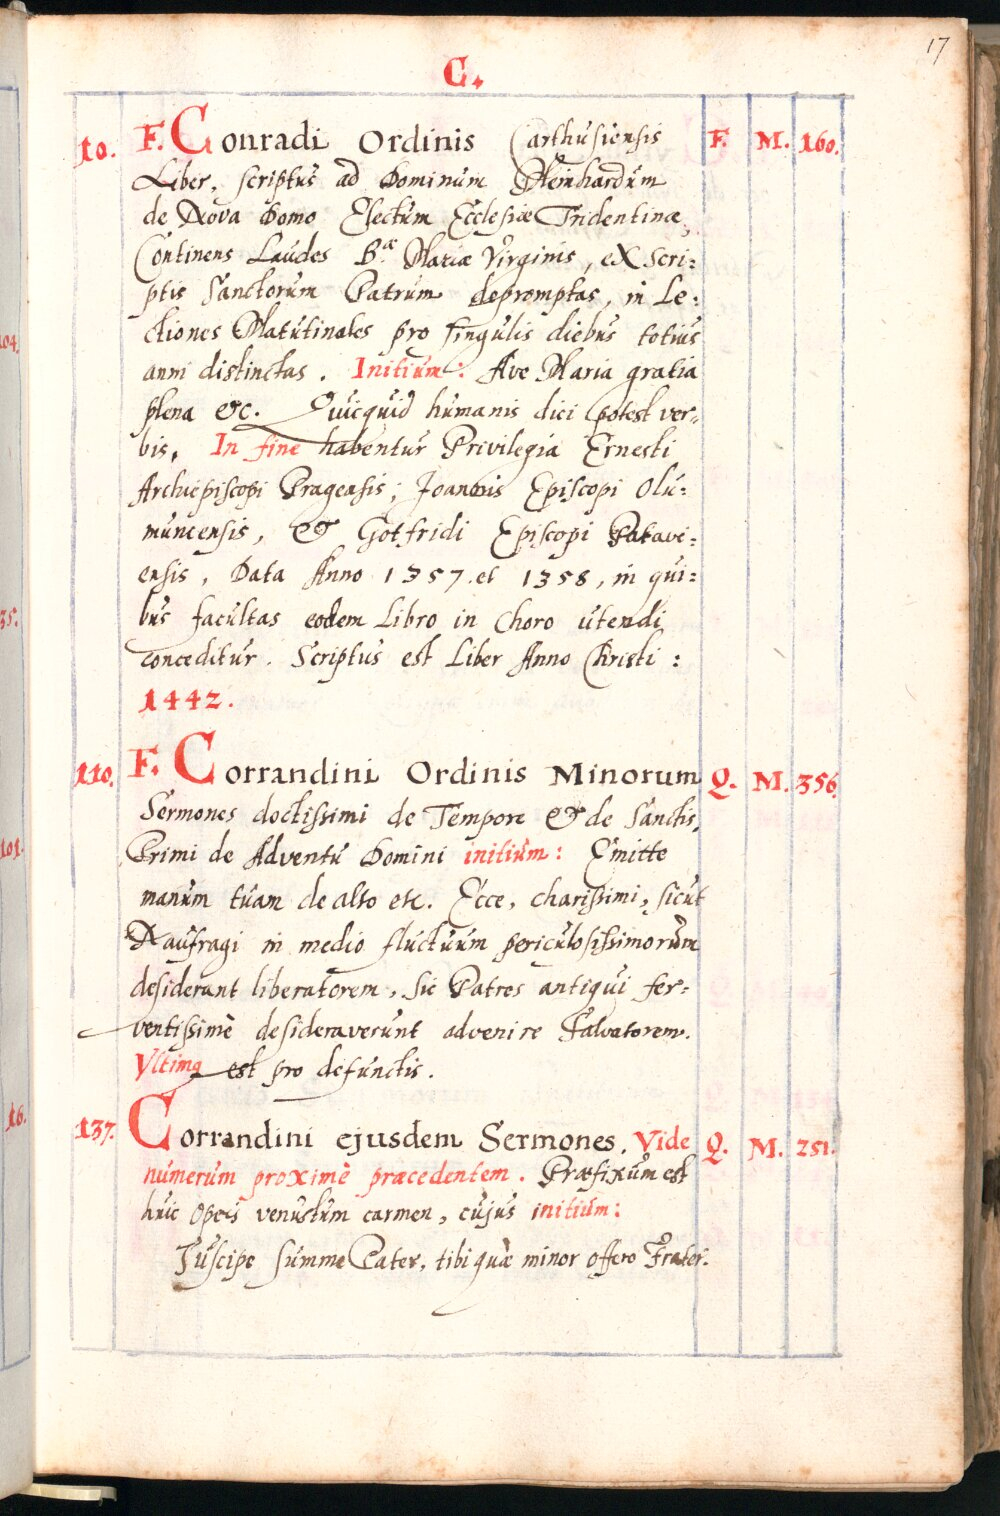 17
C.
10. F. Conradi Ordinis Carthusiensis F. M. 160.
Liber, scriptus ad Dominum Meinhardum
de Nova Domo Electum Ecclesiæ Tridentinæ,
Continens Laudes B.æ Mariæ Virginis, ex Scri:
ptis Sanctorum Patrum depromptas, in Le:
ctiones Matutinales pro singulis diebus totius
anni distinctas. Initium: Ave Maria gratia
plena etc. Quicquid humanis dici potest ver:
bis. In fine habentur Privilegia Ernesti
Archiepiscopi Pragensis; Joannis Episcopi Olu:
mucensis, & Gotfridi Episcopi Patavi:
ensis, Data Anno 1357. et 1358, in qui:
bus facultas eodem Libro in Choro utendi
conceditur. Scriptus est Liber Anno Christi:
1442.
110. F. Corrandini Ordinis Minorum Q. M. 356.
Sermones doctissimi de Tempore & de Sanctis,
Primi de Adventu Domini initium: Emitte
manum tuam de alto etc. Ecce, charissimi, sicut
Naufragi in medio fluctuum periculosissimorum
desiderant liberatorem, sic Patres antiqui fer:
ventissimè desideraverunt advenire Salvatorem.
Ultima est pro defunctis.
137. Corrandini ejusdem Sermones. Vide Q. M. 251.
numerum proximè præcedentem. Præfixum est
huic Operi venustum carmen, cujus initium:
Suscipe summe Pater, tibi quæ minor offero Frater.
104.
35.
101.
16.